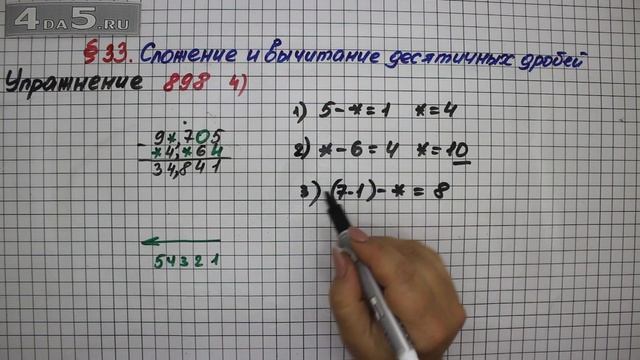 4DA5.RU
§ 33. Сложение и вычитание десятичных дробей
Упражнение 898 4)
9*,705
- *4,*64
34,841
54321
1) 5-*=1 *=4
2) *-6=4 *=10
3) (7-1)-*=8